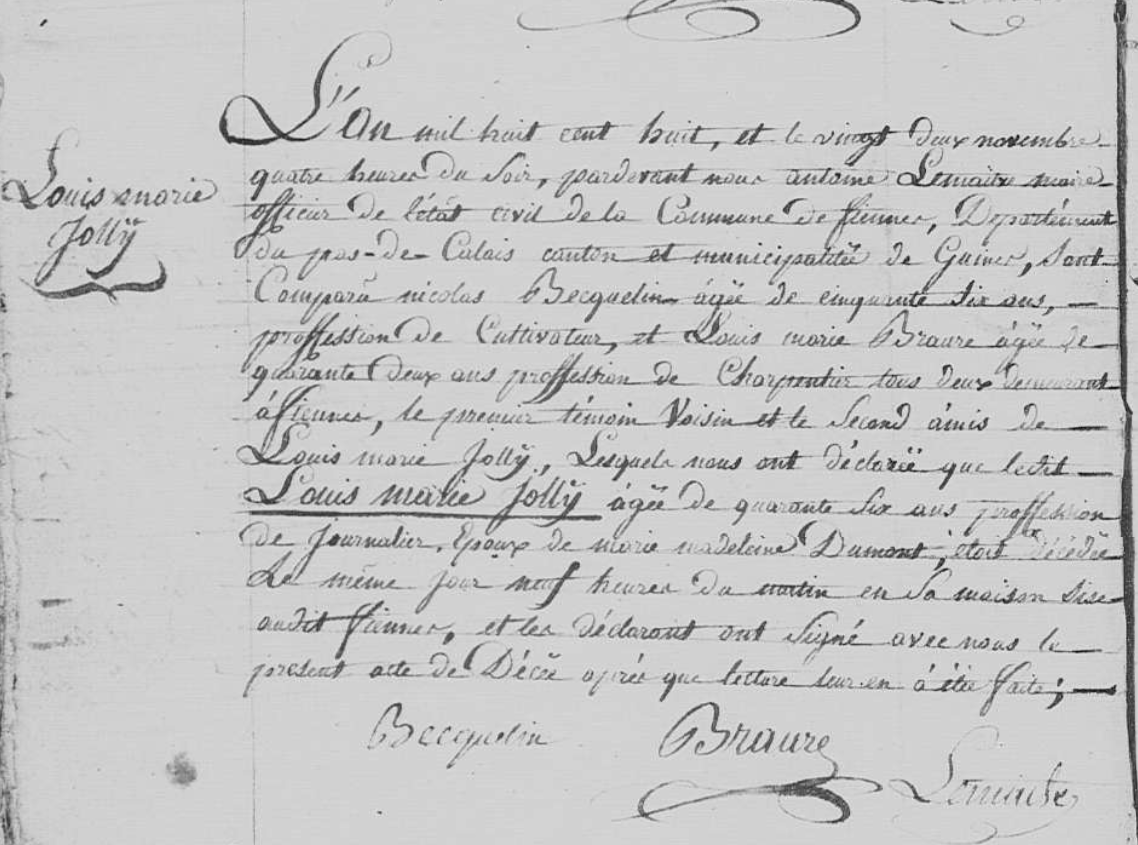 Louis marie
Jollÿ
L'An mil huit cent huit, et le vingt deux novembre
quatre heures du Soir, pardevant nous antoine Lemaitre maire
officier de l'état civil de la Commune de fiennes, Département
du pas-de-Calais canton et municipalitée de Guines, Sont
Comparû nicolas Becquelin âgée de cinquante Six ans,
proffession de Cultivateur, et Louis marie Braure âgée de
quarante Deux ans proffession de Charpentier tous deux demeurant
à fiennes, le premier témoin Voisin et le Second âmis de
Louis marie Jollÿ, Lesquels nous ont déclarée que ledit
Louis marie Jollÿ âgée de quarante Six ans proffession
de Journalier, Epoux de marie madeleine Dumont, étoit décédée
Le même jour neuf heures du matin en Sa maison Sise
audit fiennes, et les déclarant ont Signé avec nous le
présent acte de Décée après que lecture leur en à étée faite;
Becquelin Braure
Lemaitre